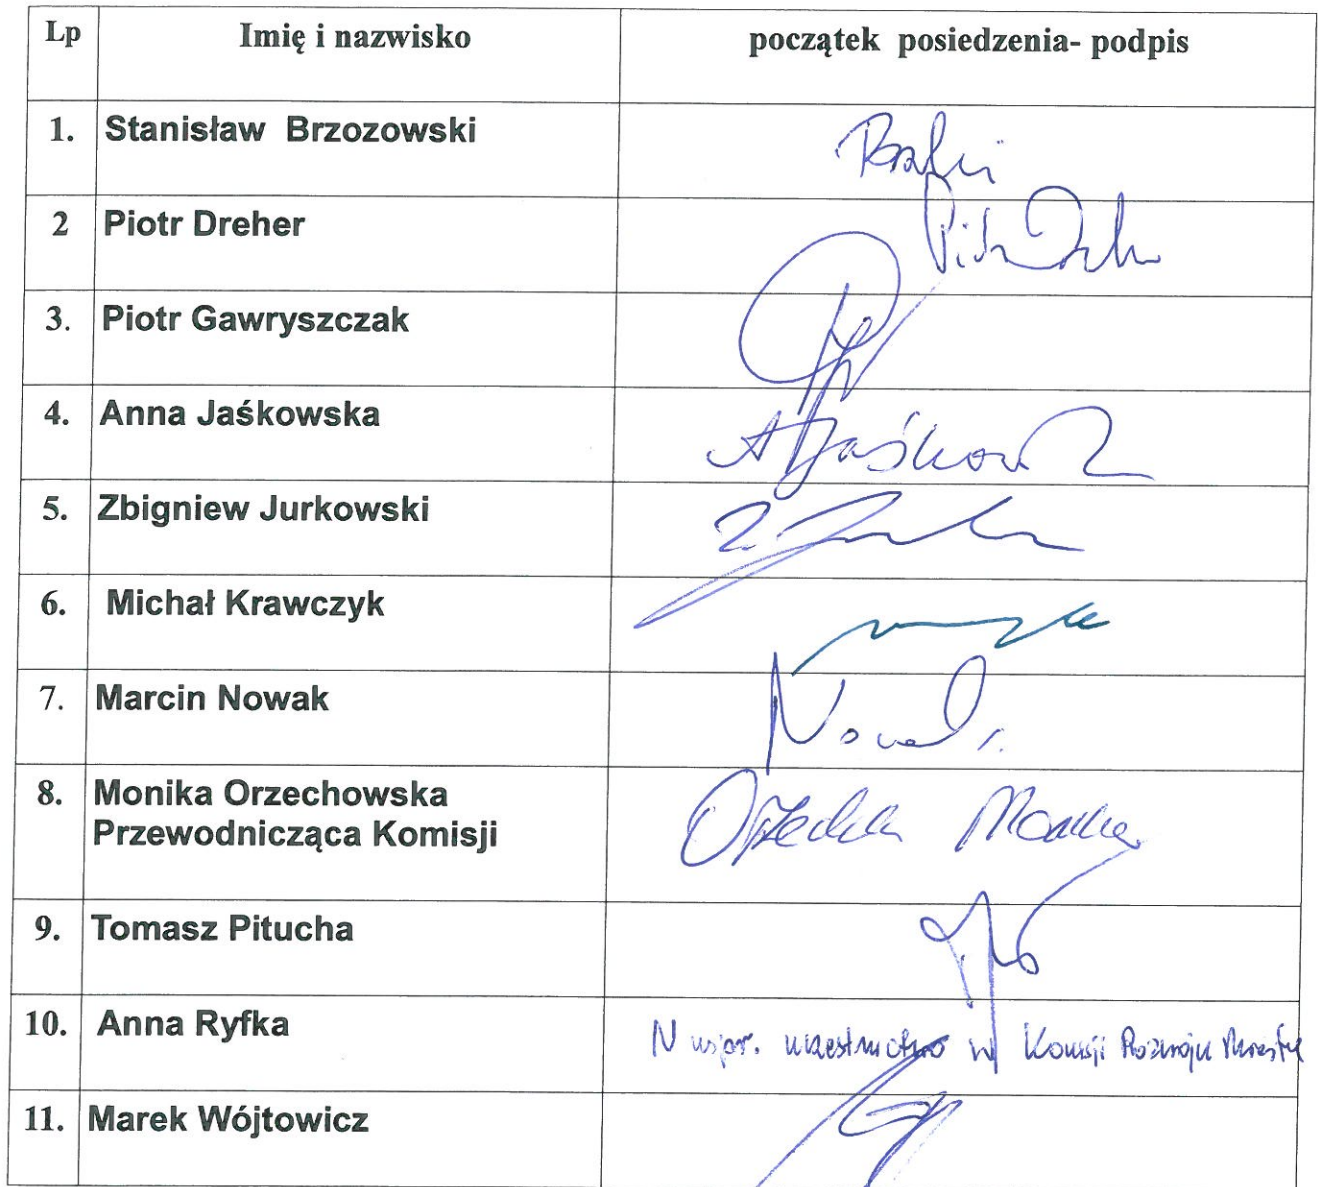 Lp Imię i nazwisko początek posiedzenia- podpis
1. Stanisław Brzozowski
2 Piotr Dreher
3. Piotr Gawryszczak
4. Anna Jaśkowska
5. Zbigniew Jurkowski
6. Michał Krawczyk
7. Marcin Nowak
8. Monika Orzechowska
Przewodnicząca Komisji
9. Tomasz Pitucha
10. Anna Ryfka N uspr. uczestnictwo w Komisji Rozwoju Miasta
11. Marek Wójtowicz